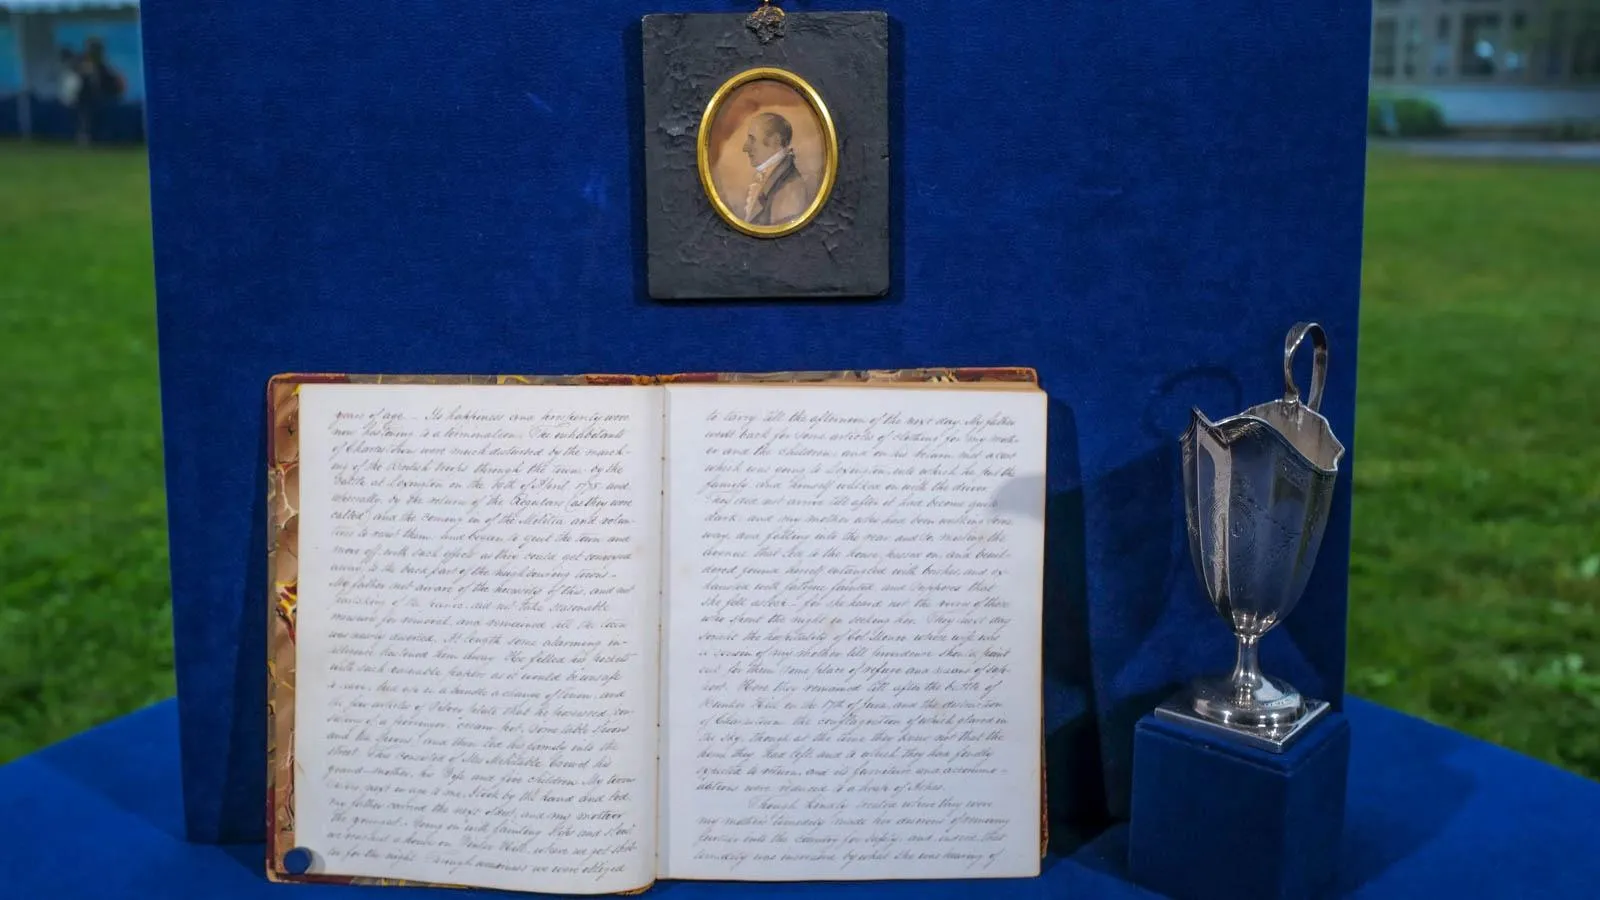 years of age – Its happiness and prosperity were
now hastening to a termination. The inhabitants
of Charlestown were much disturbed by the march-
ing of the British troops through the town; by the
battle at Lexington on the of April 1775 and
especially by the return of the Regulars (as they were
called) and the coming in of the Militia and volun-
teers to resist them. And began to quit the town and
move off with such effects as they could get conveyed
away, to the back part of the neighbouring towns –
My father not aware of the necessity of this, and not
partaking of the panic, did not take seasonable
measures for removal, and remained till the town
was nearly deserted. At length some alarming in-
telligence hastened them away. He filled his pockets
with such valuable papers as it would be unsafe
to leave, tied up in a bundle a change of linen, and
the few articles of Silver plate that he possessed, con-
sisting of a porringer, cream pot, some table spoons
and tea spoons, and then led his family into the
street. This consisted of Mrs Mehitable his
grand-mother, his Wife and five children. My twin
next in age to me, took by the hand and led,
my father carried the next oldest, and my mother
the youngest. Going on with fainting steps and slow
we reached a house on Winter Hill, where we got shel-
ter for the night. Through weariness we were obliged
to tarry till the afternoon of the next day. My father
went back for some articles of clothing for my moth-
er and the children, and on his return met a cart
which was going to Lexington, into which he put the
family and himself walked on with the driver
They did not arrive till after it had become quite
dark, and my mother who had been walking some
way, and falling into the rear and so missing the
avenue that led to the house, passed on, and bewil-
dered found herself entangled with bushes, and ex-
hausted with fatigue fainted, and supposes that
she fell asleep – for she heard not the voices of those
who spent the night in seeking her. They next day
sought the hospitality of Col. whose wife was
a cousin of my mother till Providence should point
out for them some place of refuge and means of sup-
port. Here they remained till after the battle of
Bunker Hill on the 17th of June, and the destruction
of Charlestown, the conflagration of which glared in
the sky, though at the time they knew not that the
home they had left, and to which they had fondly
expected to return, and its furniture and accommo-
dations were reduced to a heap of Ashes.
Though kindly treated where they were
my mothers timidity made her desirous of removing
further into the Country for safety, and indeed that
timidity was increased by what she was hearing of